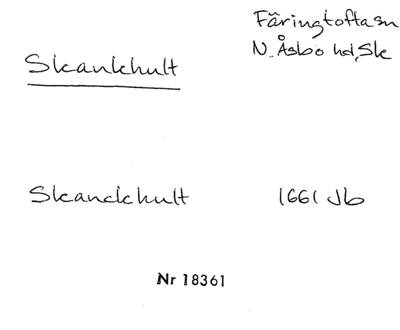 Färingtofta sn
N. Åsbo hd, Sk
Skankhult
Skanckhult 1661 Jb
Nr 18361